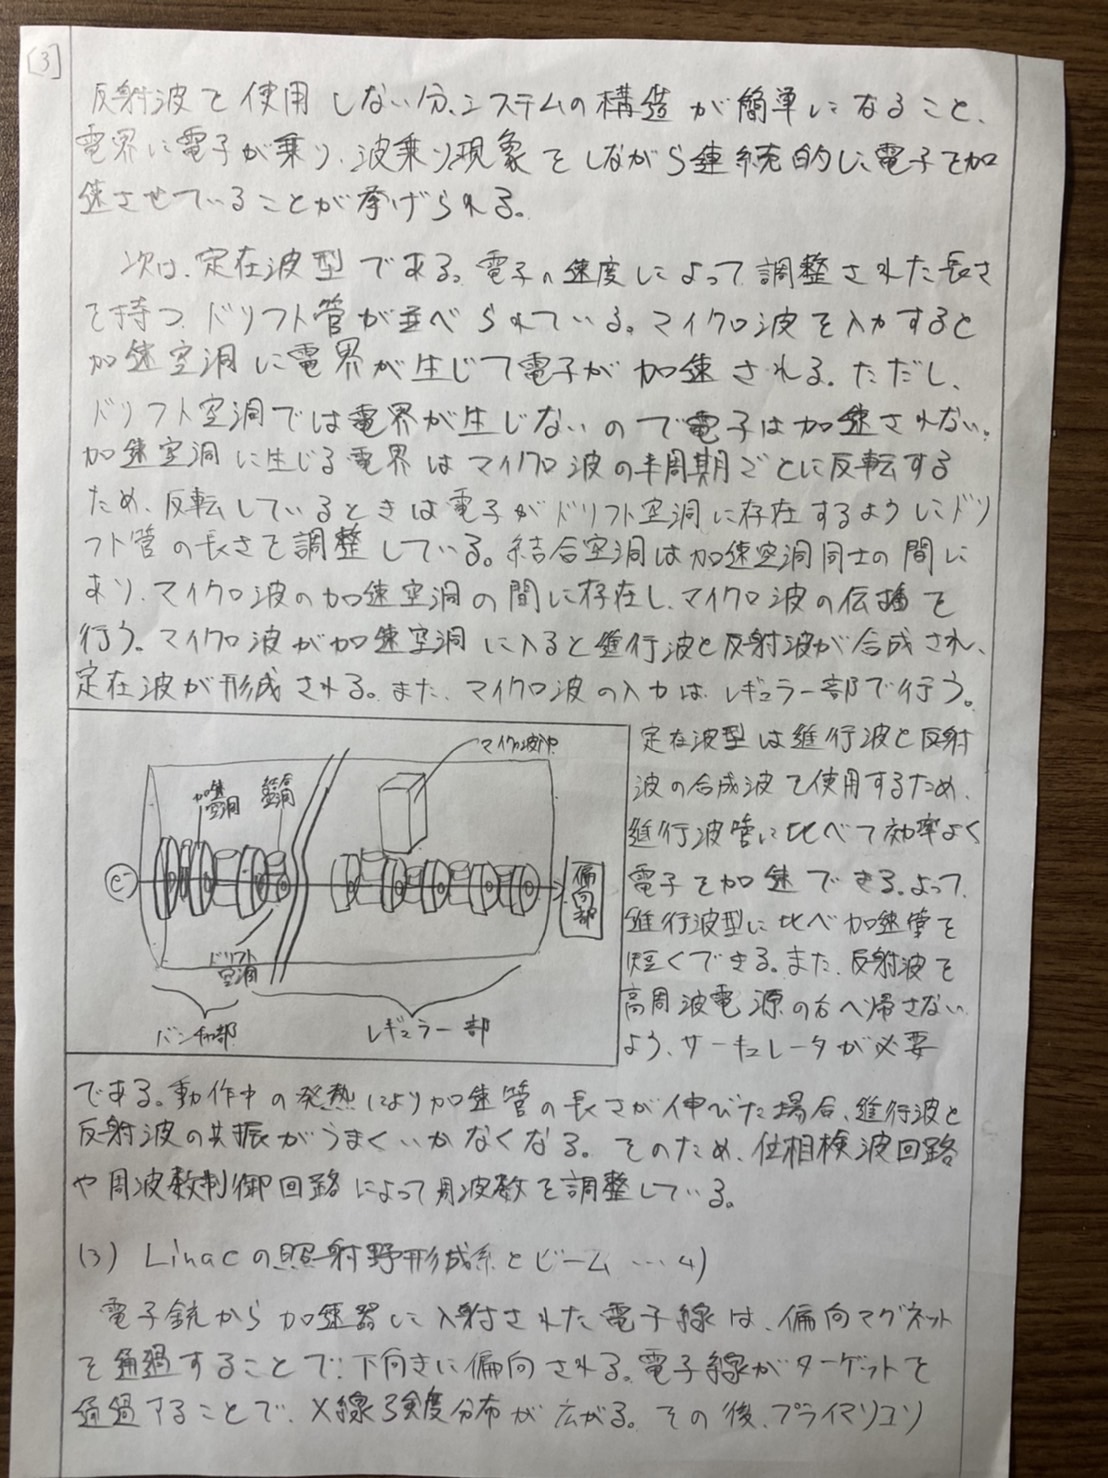 [3]
反射波を使用しない分、システムの構造が簡単になること、
電界に電子が乗り、波乗り現象をしながら連続的に電子を加
速させていることが挙げられる。
次は、定在波型である。電子の速度によって調整された長さ
を持つドリフト管が並べられている。マイクロ波を入力すると
加速空洞に電界が生じて電子が加速される。ただし、
ドリフト空洞では電界が生じないので電子は加速されない。
加速空洞に生じる電界はマイクロ波の半周期ごとに反転する
ため、反転しているときは電子がドリフト空洞に存在するようにドリ
フト管の長さを調整している。結合空洞は加速空洞同士の間に
あり、マイクロ波の加速空洞の間に存在し、マイクロ波の伝播を
行う。マイクロ波が加速空洞に入ると進行波と反射波が合成され、
定在波が形成される。また、マイクロ波の入力はレギュラー部で行う。
マイクロ波
加速
空洞
結合
空洞
e-
偏向部
ドリフト
空洞
バンチャ部
レギュラー部
定在波型は進行波と反射
波の合成波を使用するため、
進行波管に比べて効率よく
電子を加速できる。よって、
進行波型に比べ加速管を
短くできる。また、反射波を
高周波電源の方へ帰さない
よう、サーキュレータが必要
である。動作中の発熱により加速管の長さが伸びた場合、進行波と
反射波の共振がうまくいかなくなる。そのため、位相検波回路
や周波数制御回路によって周波数を調整している。
(3) Linacの照射野形成系とビーム…4)
電子銃から加速器に入射された電子線は、偏向マグネット
を通過することで下向きに偏向される。電子線がターゲットを
通過することで、X線強度分布が広がる。その後、プライマリコリ